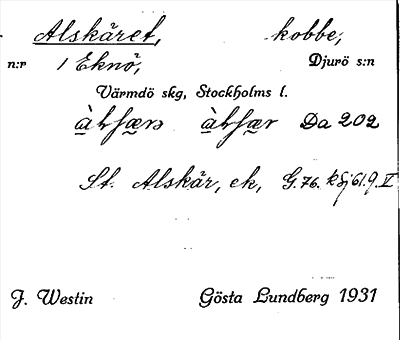 Alskäret, kobbe,
n:r 1 Eknö, Djurö s:n
Värmdö skg, Stockholms l.
Da 202
St. Alskär, ek, G.76. ksj 61.9.V
J. Westin Gösta Lundberg 1931